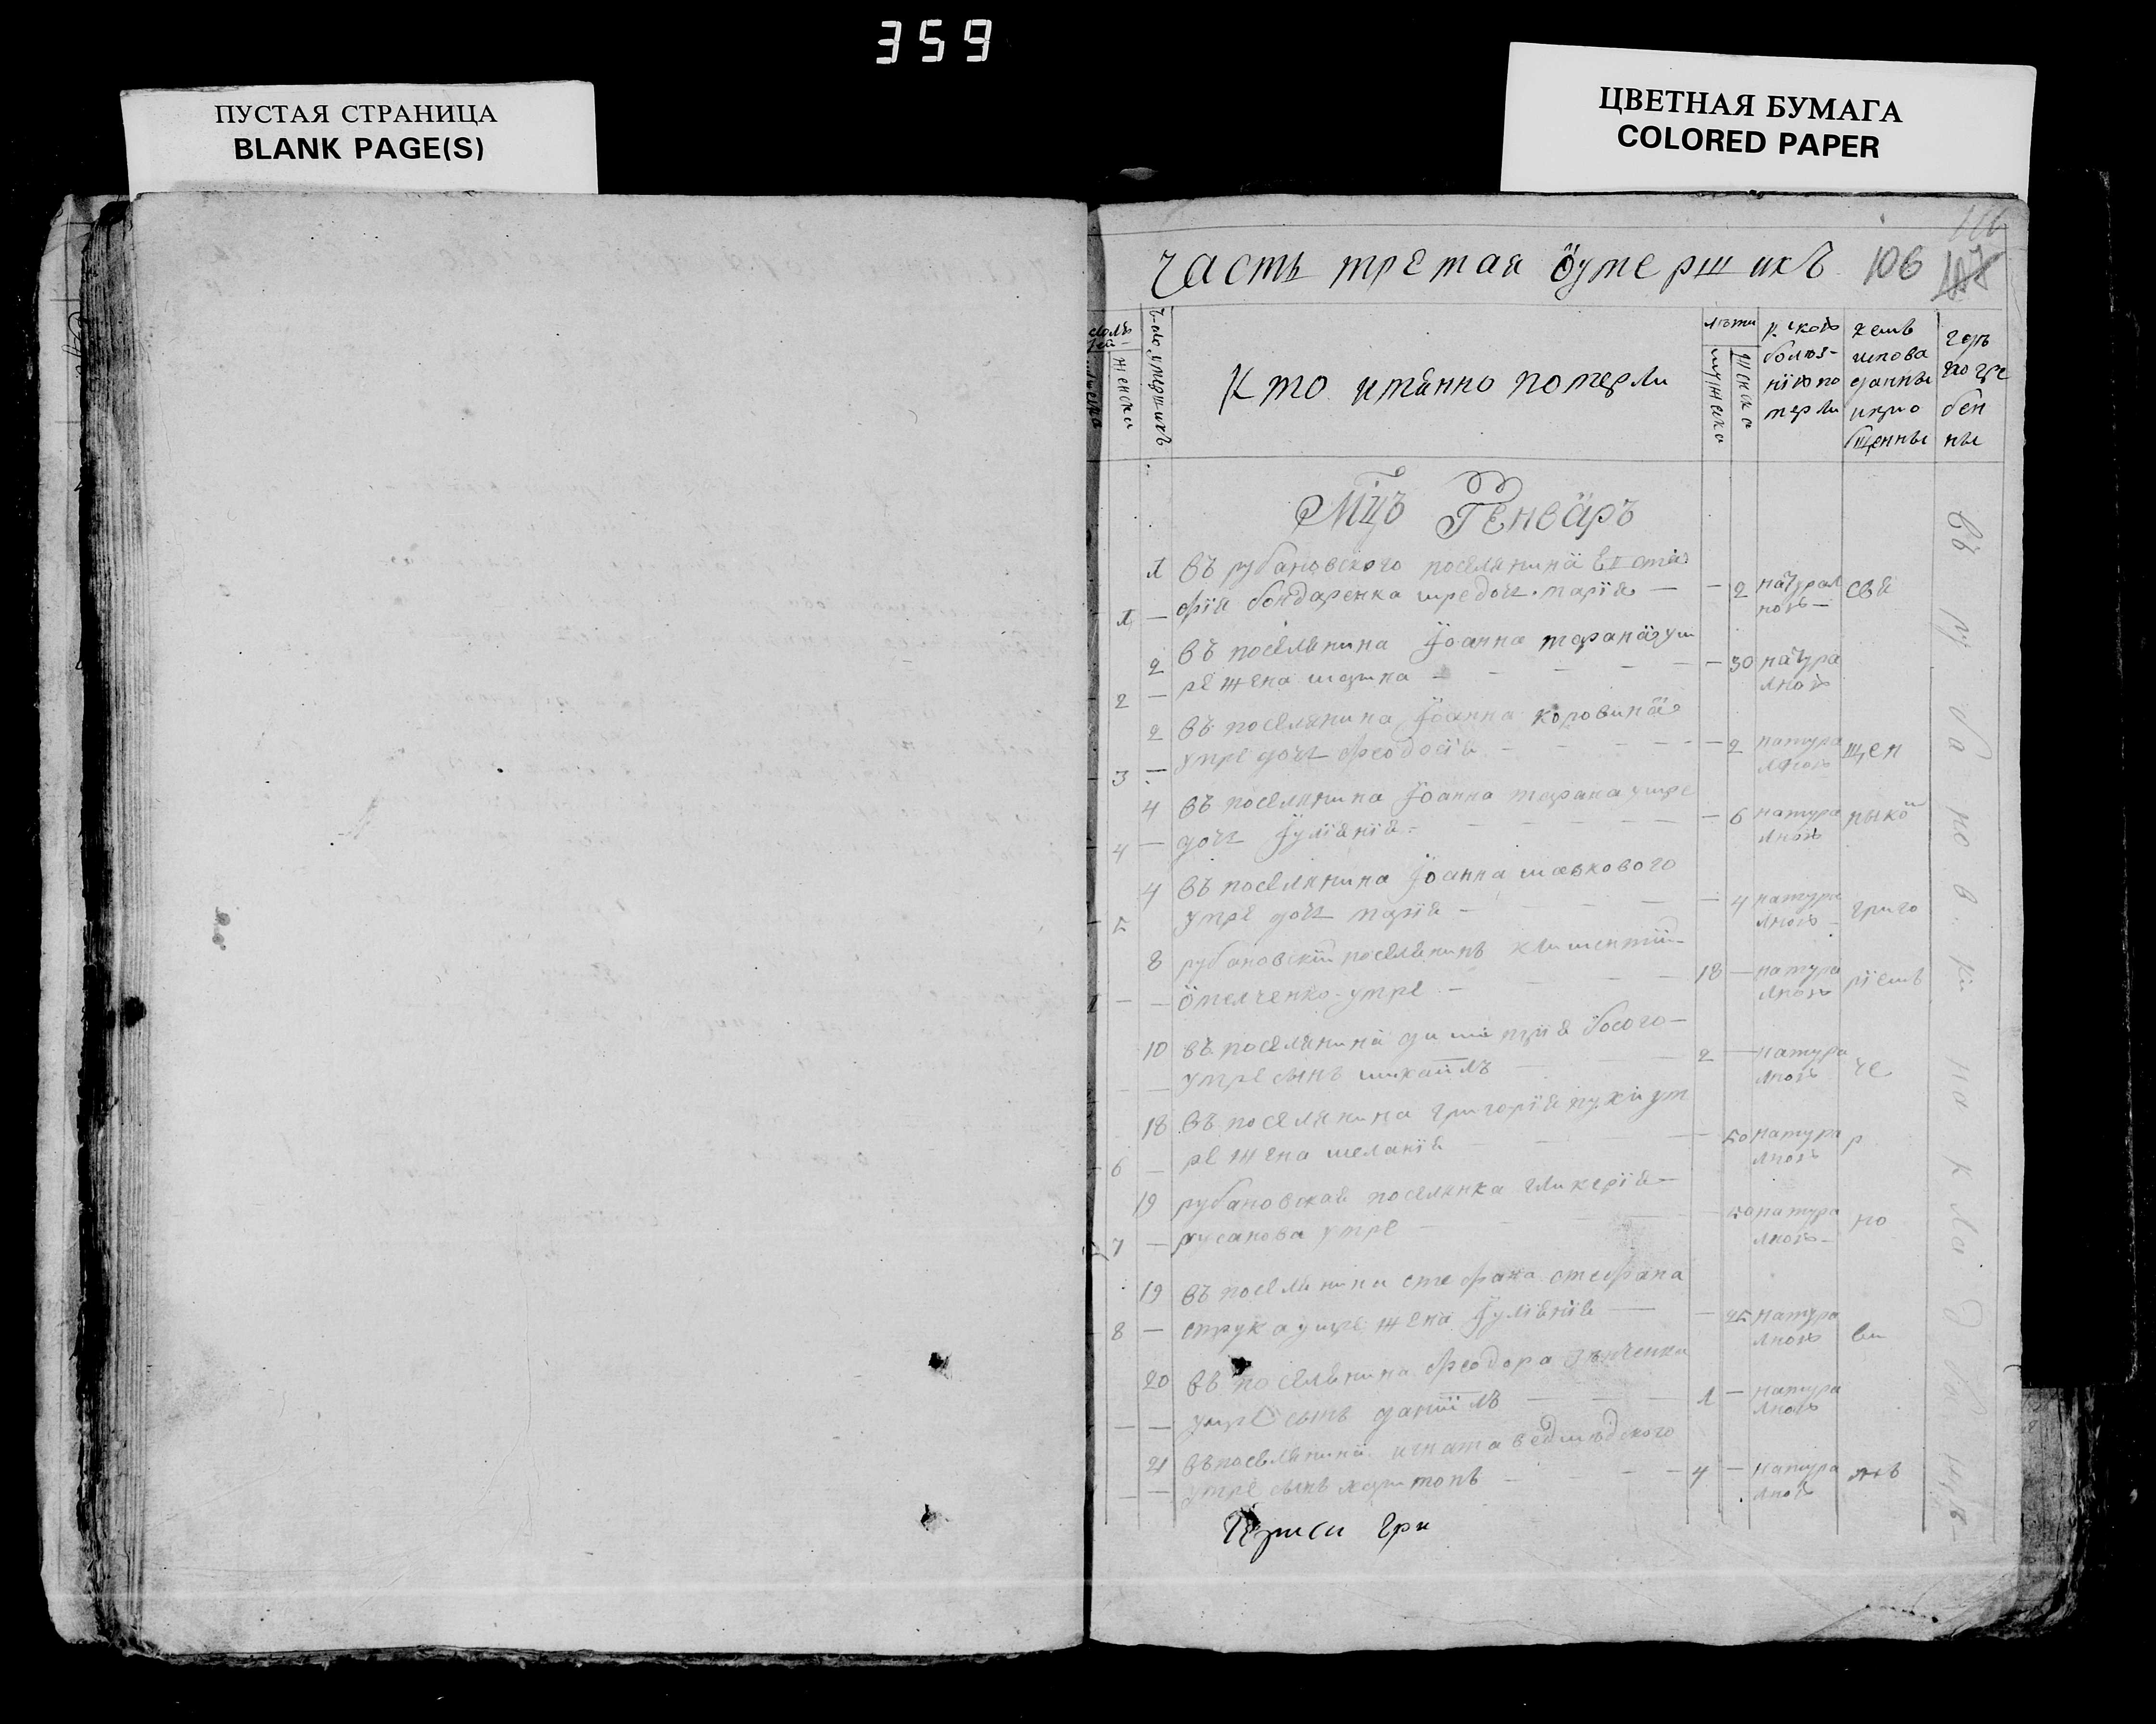 359
ПУСТАЯ СТРАНИЦА
BLANK PAGE(S)
ЦВЕТНАЯ БУМАГА
COLORED PAPER
Часть третая о умершихъ 106
женска
число умершихъ
Кто имянно померли
лѣта
мужеска
женска
какою болѣзнію померли
кемъ исповеданны и приобщенны
где погребенны
Мцъ Генваръ
1 въ рубановского поселянина Евста
1 — фія бондаренка умре дочь марія — — 2 натурал свя
ною —
2 въ поселянина Іоанна тарана ум
2 — ре жена — 30 натура
лною
2 въ поселянина Іоанна коровина
3 — умре дочь феодосія — 2 натура щен
лною
4 въ поселянина Іоанна тарана умре
4 — дочь Іулианія — 6 натура никой
лною
4 въ поселянина Іоанна шавкового
5 — умре дочь марія — 4 натура григо
лною
8 рубановскій поселянинъ климентій
1 — — Омелченко умре — 18 — натура ріемъ
лною
10 въ поселянина димитрія босого
— — умре сынъ михаилъ — 2 — натура че
лною
18 въ поселянина григорія ум
6 — ре жена меланія — 50 натура р
лною
19 рубановская поселянка гликерія
7 — русанова умре — 50 натура но
лною
19 въ поселянина стефана стефана
8 — струка умре жена Іулианія — — 25 натура ви
лною
20 въ поселянина феодора
— — умре сынъ даниилъ — 1 — натура
лною
21 въ поселянина игната ведмедского
— — умре сынъ харитонъ — 4 — натура
лною
въ рубановки на кладбищѣ
Гри